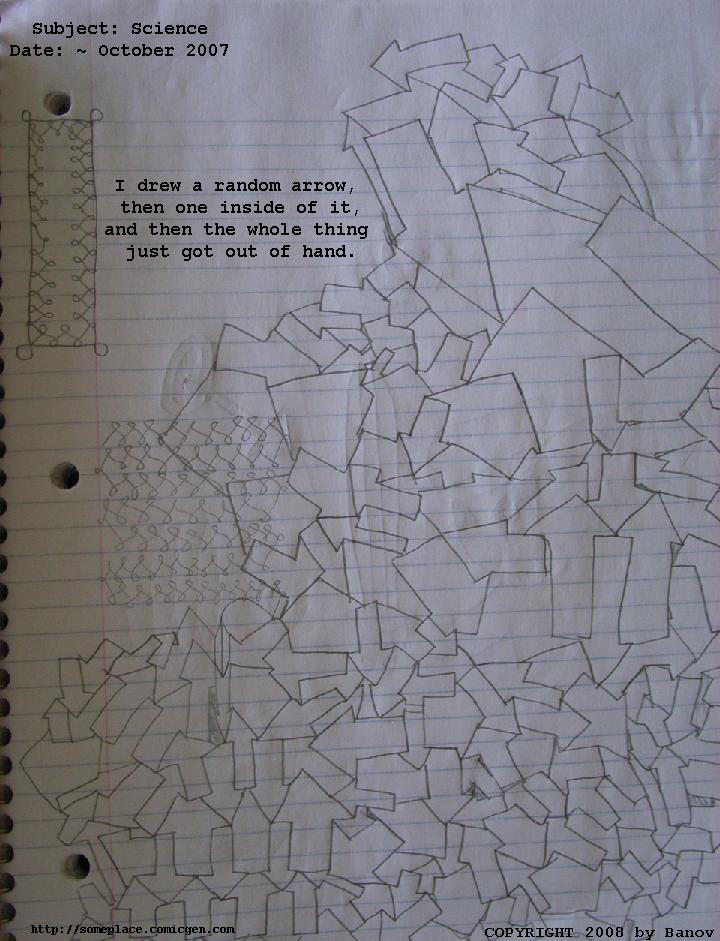 Subject: Science
Date: ~ October 2007
I drew a random arrow,
then one inside of it,
and then the whole thing
just got out of hand.
http://someplace.comicgen.com
COPYRIGHT 2008 by Banov